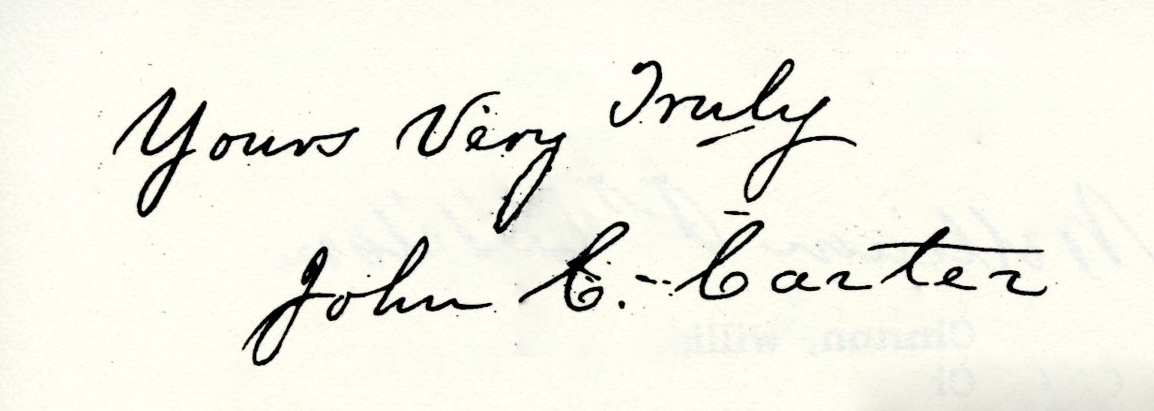 Yours Very Truly
John C. Carter